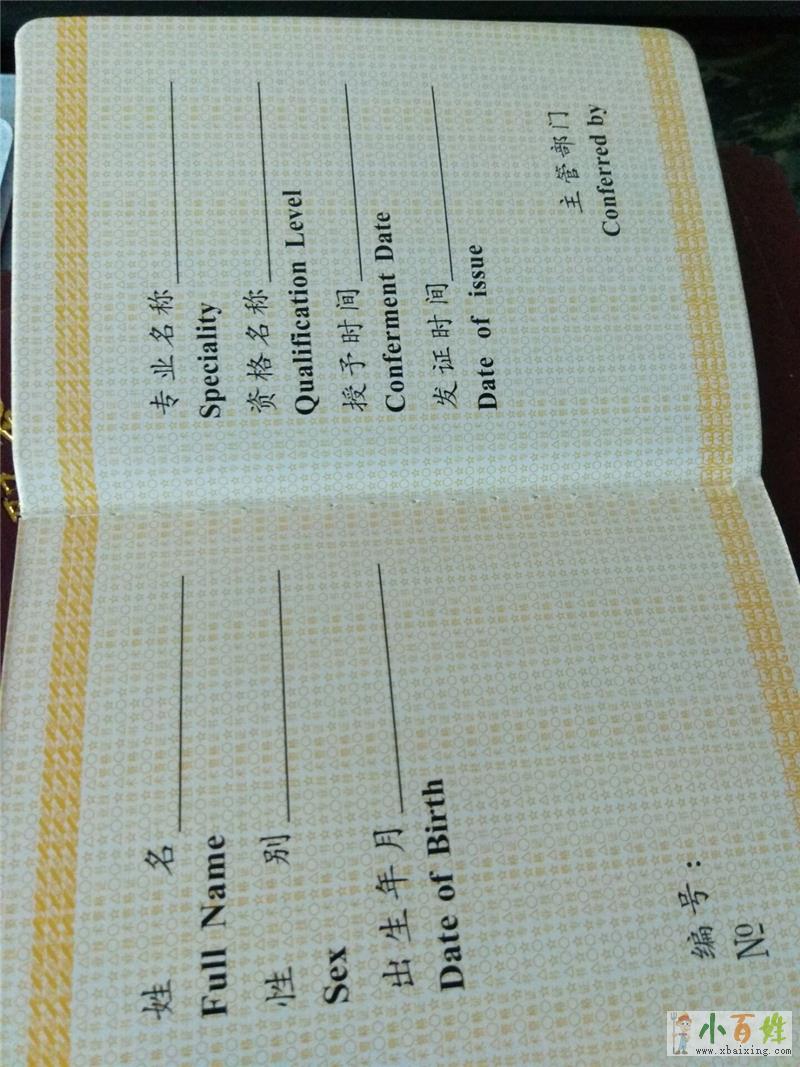 姓 名
Full Name
性 别
Sex
出生年月
Date of Birth
编号：
№
专业名称
Speciality
资格名称
Qualification Level
授予时间
Conferment Date
发证时间
Date of issue
主管部门
Conferred by
小百姓
www.xbaixing.com